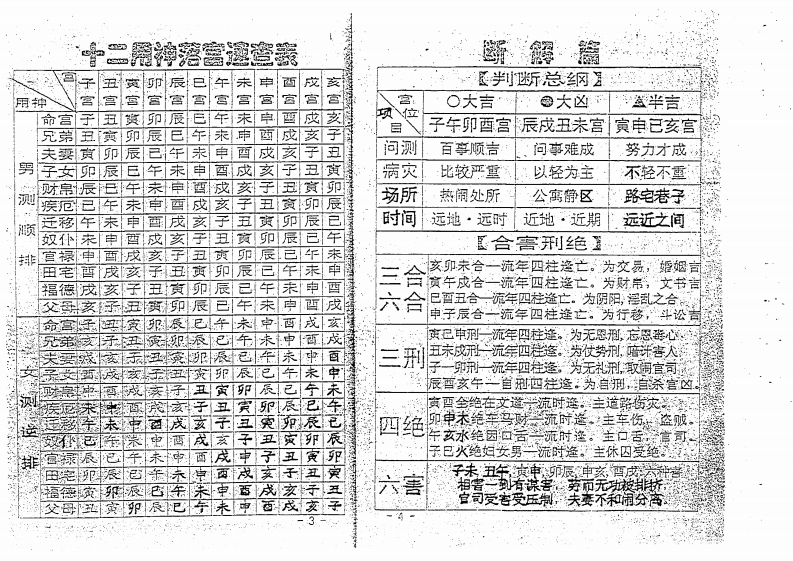 十二用神落宫速查表
宫 子 丑 寅 卯 辰 巳 午 未 申 酉 戌 亥
用神 宫 宫 宫 宫 宫 宫 宫 宫 宫 宫 宫 宫
男测顺排
命宫 子 丑 寅 卯 辰 巳 午 未 申 酉 戌 亥
兄弟 丑 寅 卯 辰 巳 午 未 申 酉 戌 亥 子
夫妻 寅 卯 辰 巳 午 未 申 酉 戌 亥 子 丑
子女 卯 辰 巳 午 未 申 酉 戌 亥 子 丑 寅
财帛 辰 巳 午 未 申 酉 戌 亥 子 丑 寅 卯
疾厄 巳 午 未 申 酉 戌 亥 子 丑 寅 卯 辰
迁移 午 未 申 酉 戌 亥 子 丑 寅 卯 辰 巳
奴仆 未 申 酉 戌 亥 子 丑 寅 卯 辰 巳 午
官禄 申 酉 戌 亥 子 丑 寅 卯 辰 巳 午 未
田宅 酉 戌 亥 子 丑 寅 卯 辰 巳 午 未 申
福德 戌 亥 子 丑 寅 卯 辰 巳 午 未 申 酉
父母 亥 子 丑 寅 卯 辰 巳 午 未 申 酉 戌
女测逆排
命宫 子 丑 寅 卯 辰 巳 午 未 申 酉 戌 亥
兄弟 亥 子 丑 寅 卯 辰 巳 午 未 申 酉 戌
夫妻 戌 亥 子 丑 寅 卯 辰 巳 午 未 申 酉
子女 酉 戌 亥 子 丑 寅 卯 辰 巳 午 未 申
财帛 申 酉 戌 亥 子 丑 寅 卯 辰 巳 午 未
疾厄 未 申 酉 戌 亥 子 丑 寅 卯 辰 巳 午
迁移 午 未 申 酉 戌 亥 子 丑 寅 卯 辰 巳
奴仆 巳 午 未 申 酉 戌 亥 子 丑 寅 卯 辰
官禄 辰 巳 午 未 申 酉 戌 亥 子 丑 寅 卯
田宅 卯 辰 巳 午 未 申 酉 戌 亥 子 丑 寅
福德 寅 卯 辰 巳 午 未 申 酉 戌 亥 子 丑
父母 丑 寅 卯 辰 巳 午 未 申 酉 戌 亥 子
- 3 -
断解篇
【判断总纲】
宫位 项目 ○大吉 ●大凶 △半吉
子午卯酉宫 辰戌丑未宫 寅申巳亥宫
问测 百事顺吉 问事难成 努力才成
病灾 比较严重 以轻为主 不轻不重
场所 热闹处所 公寓静区 路宅巷子
时间 远地·远时 近地·近期 远近之间
【合害刑绝】
三合六合
亥卯未合—流年四柱逢亡。为交易，婚姻吉
寅午戌合—流年四柱逢亡。为财帛，文书吉
巳酉丑合—流年四柱逢亡。为阴阳，淫乱之合。
申子辰合—流年四柱逢亡。为行移，斗讼吉
三刑
寅巳申刑—流年四柱逢。为无恩刑，忘恩毒心。
丑未戌刑—流年四柱逢。为仗势刑，暗讦害人。
子—卯刑—流年四柱逢。为无礼刑，取闹官司。
辰酉亥午—自刑四柱逢。为自刑，自杀官凶。
四绝
寅酉金绝在文道—流时逢。主道路伤灾。
卯申木绝车马财—流时逢。主车伤，盗贼。
午亥水绝因口舌—流时逢。主口舌，官司。
子巳火绝妇女男—流时逢。主休囚受绝。
六害
子未 丑午 寅申 卯辰 申亥 酉戌 六种害
相害一到有谋害，劳而无功被排挤，
官司受害受压制，夫妻不和闹分离。
- 4 -